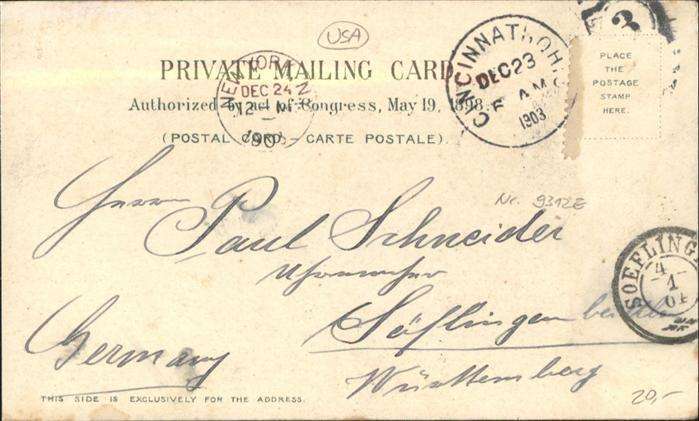 USA
PRIVATE MAILING CARD
Authorized by act of Congress, May 19, 1898.
(POSTAL CARD – CARTE POSTALE)
NEW YORK
DEC 24 Z
12 - M
190
CINCINNATI, OHIO
DEC 23
F AM
1903
2
PLACE
THE
POSTAGE
STAMP
HERE.
Nr. 9312E
Herrn Paul Schneider
Uhrmacher
Söflingen bei
Württemberg
Germany
SOEFLINGEN
4
1
04
20,-
THIS SIDE IS EXCLUSIVELY FOR THE ADDRESS.